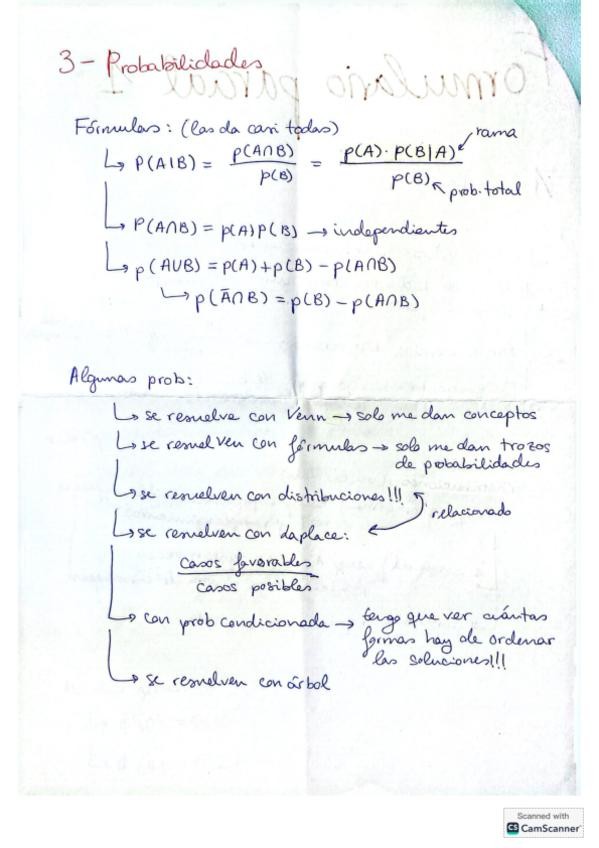 3 - Probabilidades
Formulario parcial 1
Fórmulas: (las da casi todas)
↳ P(A|B) = p(A∩B) / p(B) = p(A) · p(B|A) / p(B)
rama
prob. total
↳ P(A∩B) = p(A)p(B) → independientes
↳ p(A∪B) = p(A)+p(B) - p(A∩B)
↳ p(Ā∩B) = p(B) - p(A∩B)
Algunas prob:
↳ se resuelve con Venn → solo me dan conceptos
↳ se resuelven con fórmulas → solo me dan trozos
de probabilidades
↳ se resuelven con distribuciones!!!
relacionado
↳ se resuelven con Laplace:
casos favorables
casos posibles
↳ con prob condicionada → tengo que ver cuántas
formas hay de ordenar
las soluciones!!!
↳ se resuelven con árbol
Scanned with
CS CamScanner